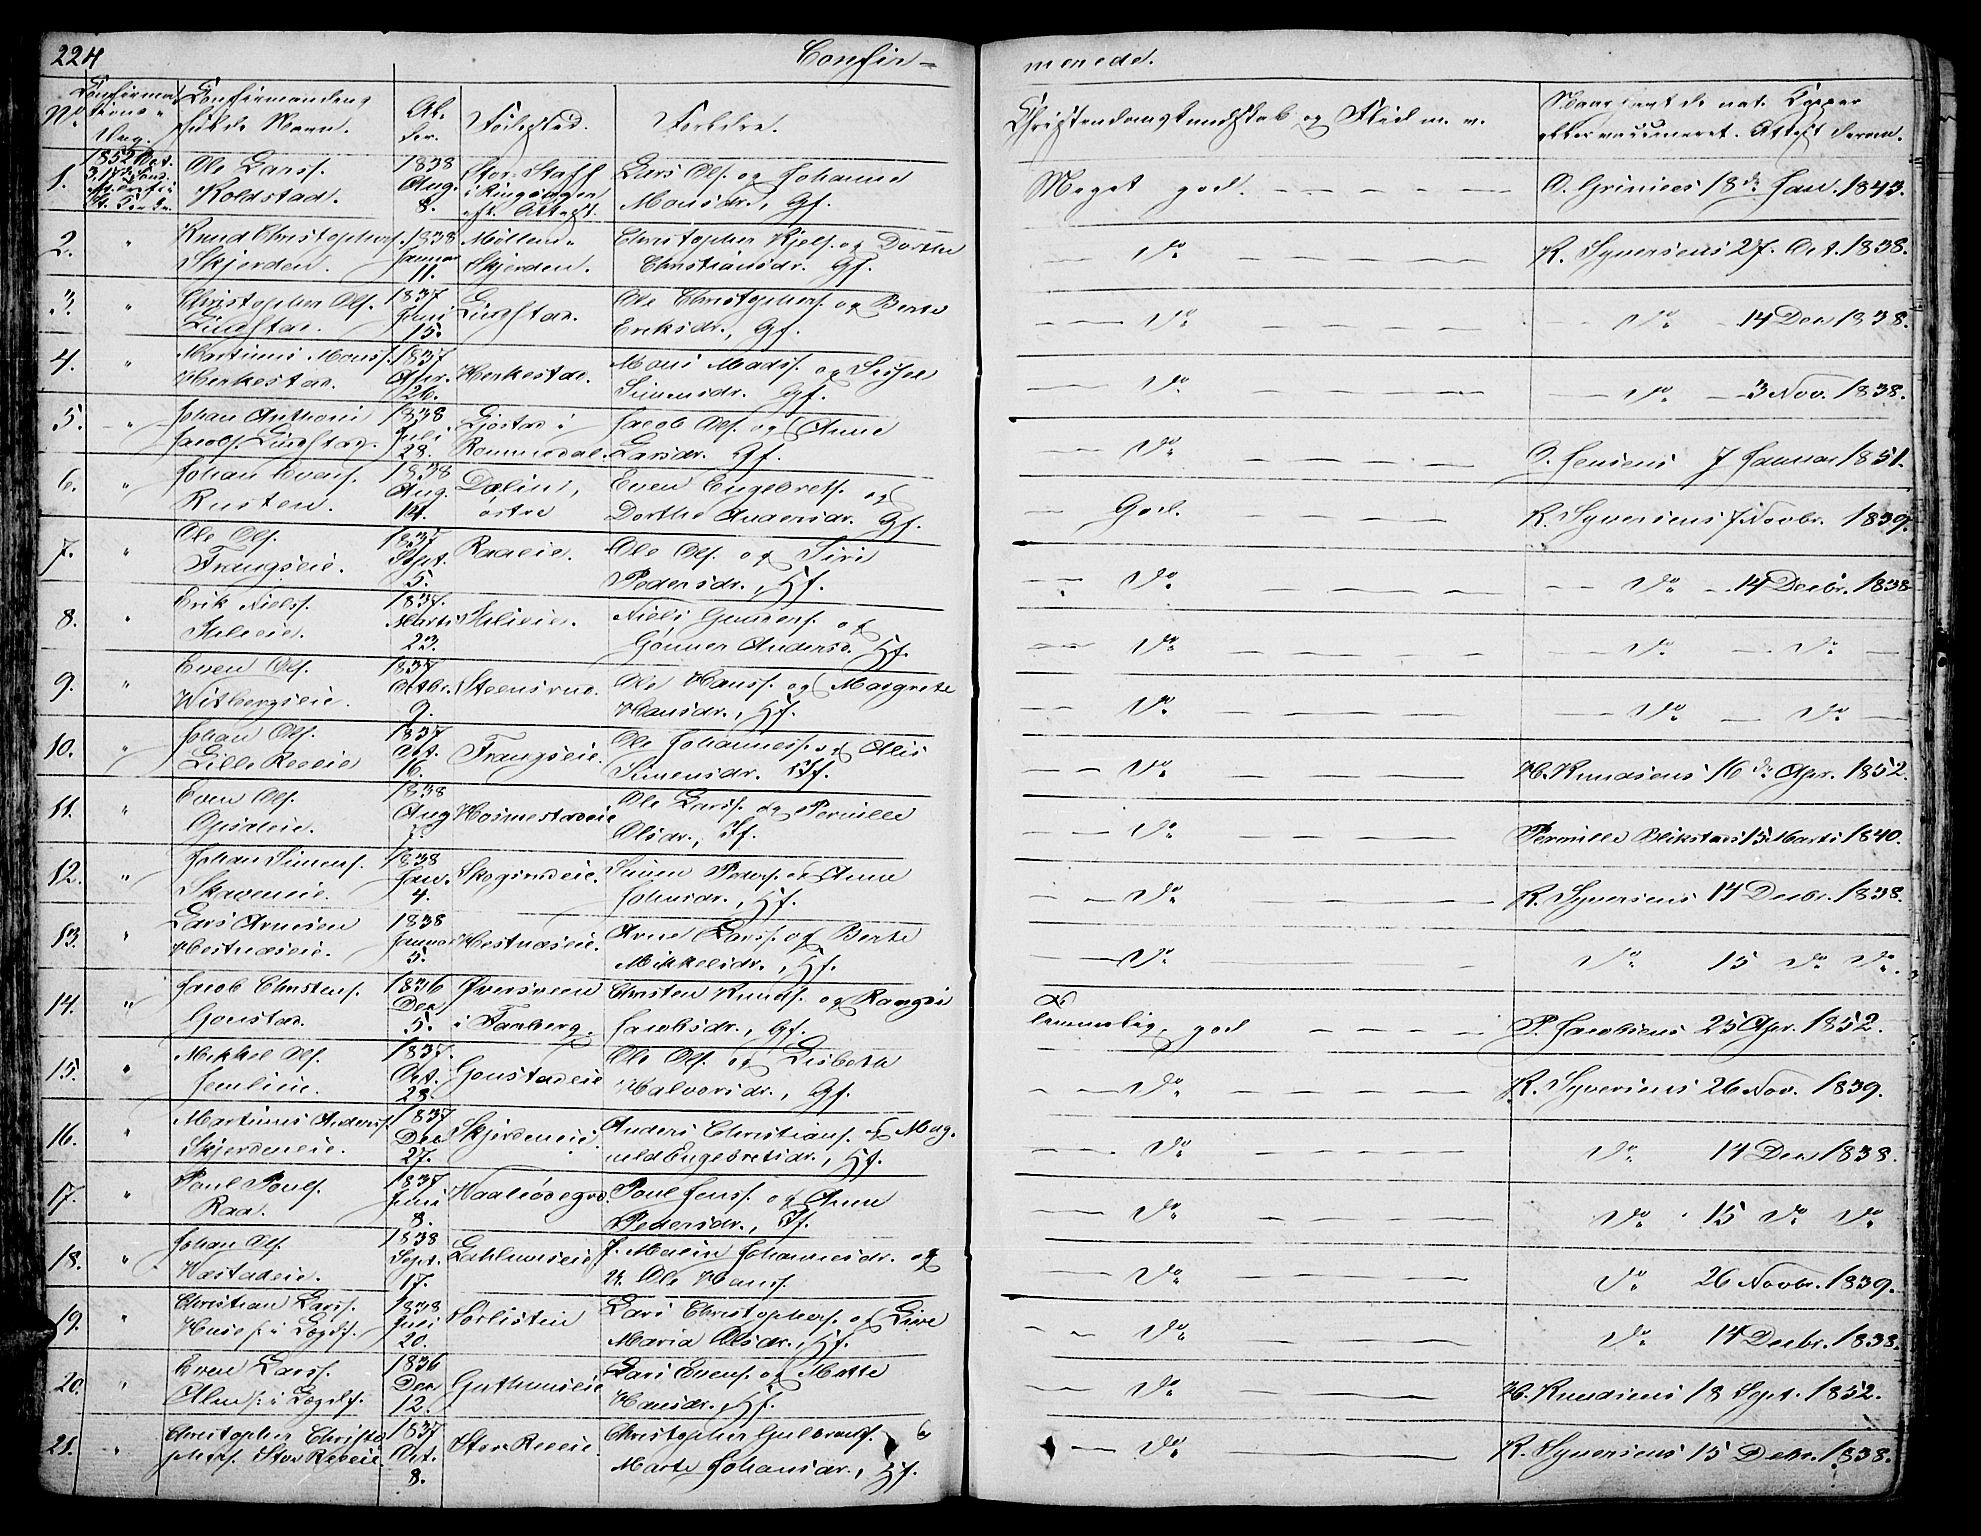 224
Confir-
merede.
No.
Confirma-
tions-
Dag.
Confirmandens
fulde Navn.
Al-
der.
Fødested.
Forældre.
Christendomskundskab og Flid m. v.
Naar havt de nat. Kopper
eller vaccineret. Attest derom.
1.
1852 Oct.
3.
Ole Larss.
Koldstad.
1838
Aug.
8.
Stor Staff
i Ringsager
eft. Attest.
Lars Ols. og Johanne
Monsdr., Gf.
Meget god.
O. Grinies 18de Jan. 1843.
2. "
Knud Christophers.
Skjerden.
1838
Januar
11.
Møllens-
Skjerden.
Christopher Kjels. og Dorthe
Christiansdr. Gf.
Do
K. Syversens 27. Oct. 1838.
3. "
Christopher Ols.
Lindstad.
1837
Juni
15.
Lindstad.
Ole Christophers. og Berte
Eriksdr., Gf.
Do
Do 14 Dec 1838.
4 "
Martinus Monss.
Herkestad.
1837
Apr.
26.
Herkestad.
Mons Madss. og Sissel
Simensdr. Gf.
Do
Do 3 Nov. 1838.
5. "
Johan Anthoni
Jacobs. Lindstad.
1838
Juli
28.
Ljøstad i
Rommedal.
Jacob Ols. og Anne
Larsdr. Gf.
Do
O. Jensens 7 Januar 1851.
6. "
Johan Evens.
Rusten.
1838
Aug.
14.
Dælin,
østre
Even Engebrets. og
Dorthe Andersdr. Gf.
God.
K. Syversens 7 Novbr. 1839.
7. "
Ole Ols.
Frangseie.
1837
Sept.
5.
Raaeie.
Ole Ols. og Siri
Pedersdr., Hf.
Do
Do 14 Decbr. 1838
8. "
Erik Nielss.
1837.
Marts
23.
Niels Gunners. og
Gønner Andersd. Hf.
Do
Do Do
9. "
Even Ols.
Witbergseie.
1837
Octbr.
9.
Steensrud.
Ole Hanss. og Margrete
Hansdr., Hf.
Do
Do Do
10. "
Johan Ols.
Lille Reeeie
1837
Oct.
16.
Frangseie.
Ole Johanness. og Alis
Simensdr. If.
Do
H. Knudsens 16de Apr. 1852.
11. "
Even Ols.
1838
Aug
Hosmestadeie
Ole Larss. og Pernille
Olsdr., If.
Do
Pernille Blikstads 15 Marts 1840.
12. "
Johan Simens.
Skaveneie.
1838
Jan.
4.
Skogsrudeie.
Simen Peders. og Anne
Johnsdr., Hf.
Do
K. Syversens 14 Decbr. 1838.
13. "
Lars Arnesen
Hestnæseie.
1838
Januar
5.
Hestnæseie.
Arne Larss. og Berte
Mikkelsdr., Hf.
Do
Do 15 Do Do
14. "
Jacob Christens.
Gonstad.
1836
Dec
5.
Øversveen
i Faaberg.
Christen Knuds. og Rangdi
Jacobsdr., Gf.
temmelig god
P. Jacobsens 25 Apr. 1852.
15. "
Mikkel Ols.
Jemlieie.
1837.
Oct.
28.
Gonstadeie
Ole Ols. og Lisbeth
Halvorsdr., Gf.
Do
K. Syversens 26 Nov. 1839.
16. "
Martinus Anders.
Skjerdeneie.
1837
Dec
27.
Skjerdeneie.
Anders Christians. & Mag-
nild Engebretsdr., Hf.
Do
Do 14 Dec 1838.
17. "
Paul Pouls.
Raa.
1837
Juni
8.
Poul Jenss. og Anne
Pedersdr., If.
Do
Do 15 Do Do
18. "
Johan Ols.
Næstadeie.
1838
Sept.
17.
J. Maria Johannesdr. og
Ole Hanss.
Do
Do 26 Novbr. 1839.
19. "
Christian Larss.
Huse p. i Lægdf.
1838
Juli
20.
Sørlistein
Lars Christophers. og Live
Maria Olsdr., Hf.
Do
Do 14 Decbr. 1838.
20. "
Even Larss.
Alm p. i Lægdf.
1836
Dec
12.
Guthuuseie
Lars Evens. og Mette
Hansdr., Hf.
Do
H. Knudsens 18 Sept. 1852.
21. "
Christopher Christo-
phers. Stor Reeeie.
1837
Oct.
8.
Stor Reeeie.
Christopher Gulbrands. &
Marte Johansdr., Hf.
Do
K. Syversens 15 Decbr. 1838.